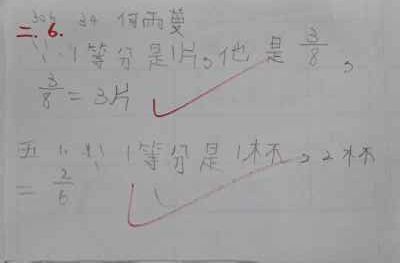 306 34 何雨蔓
二.6.
(1) 1等分是1片,他是3/8,
3/8=3片
五 1等分是1杯,2杯
=2/6